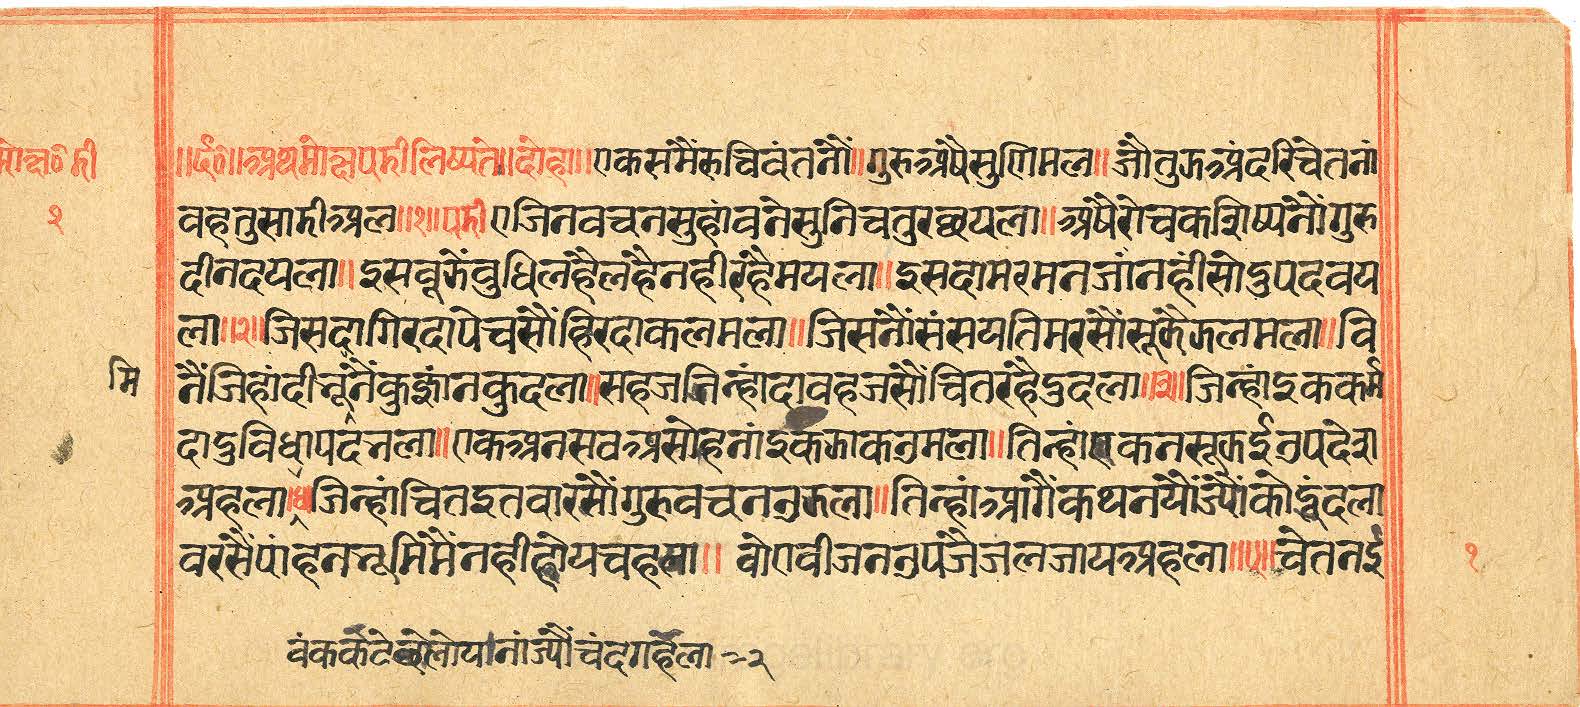 ॥र्द०॥अथमोक्षपैडीलिष्यते॥दोहा॥एकसमैंरुचिवंतनौं॥गुरुअषैसुणिमल॥जौतुझअंदरिचेतनां
वहतुसाडीअल॥१॥पैडी॥एजिनवचनसुहांवनेसुनिचतुरछयला॥अषैरोचकशिष्यनौंगुरु
दीनदयला॥इसबूझैंबुधिलहैलहैनहीरहैमयला॥इसदामरमनजांनहींसोदुपदवय
ला॥२॥जिसदागिरदापेचसौंहिरदाकलमला॥जिसनौंसंसयतिमरसौंसूझैझलमला॥वि
नैंजिहांदीनूनैंकुज्ञांनकुदला॥सहजजिन्हांदावहजसौंचितरहैदुदला॥३॥जिन्हांइककर्म
दादुविधापदनला॥एकअनसवअसोहनांइकझाकन्रमला॥तिन्हांएकनसूझई
अहला॥४॥जिन्हांचितइतवारसौंगुरुवचननझला॥तिन्हांआगैंकथनयौंज्यौंकोद्वंदला
वरसैंपांहनभूमिमैंनहीहोयचहला॥वोएवीजननपजैजलजायअहला॥५॥चेतनई
मोक्षपैडी
१
मि
१
वंकर्कटेछोलोपांनांज्यौंचंदगहला २